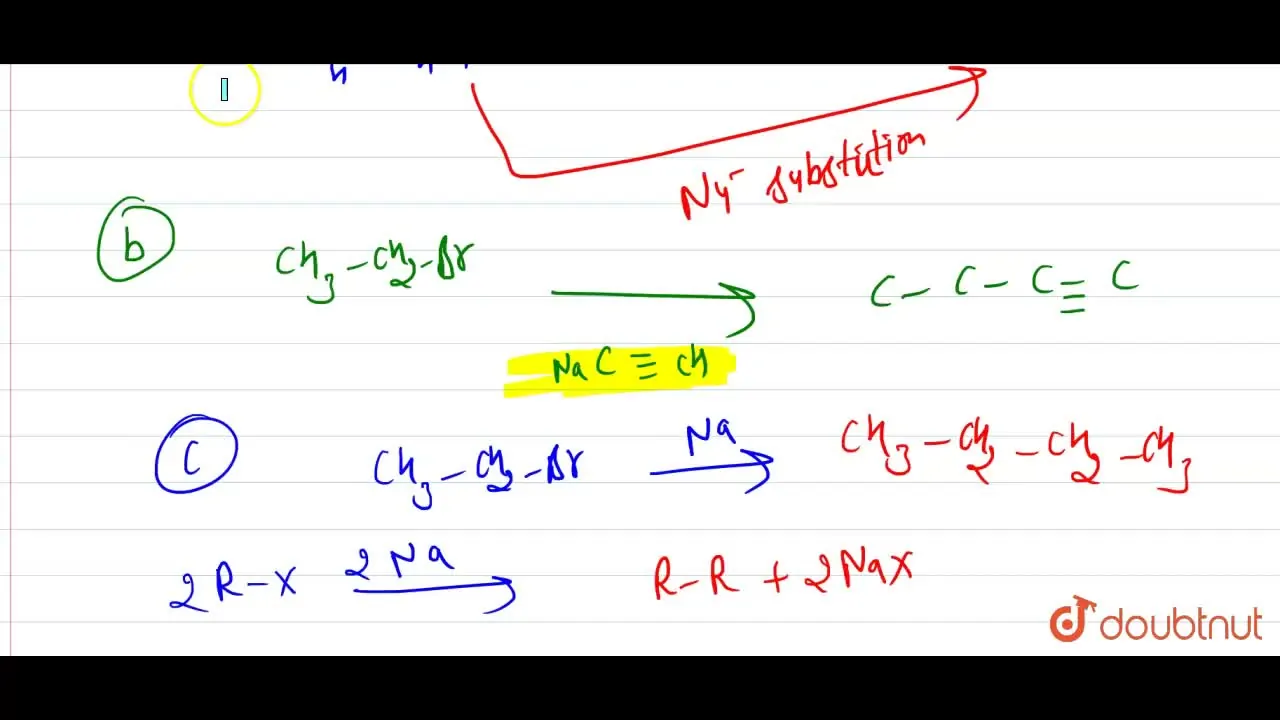 Nu⁻ substitution
b
CH₃ – CH₂ – Br
C – C – C ≡ C
NaC ≡ CH
c
CH₃ – CH₂ – Br
Na
CH₃ – CH₂ – CH₂ – CH₃
2R – X
2Na
R – R + 2NaX
doubtnut